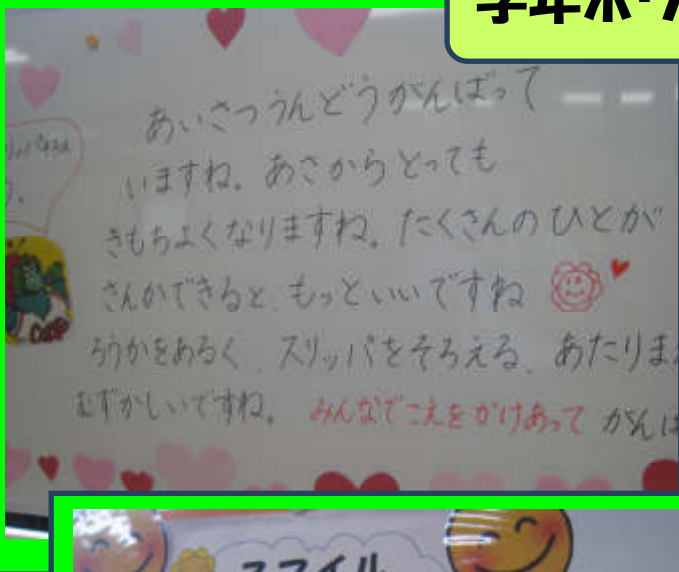 学年ボ
あいさつうんどうがんばって
いますね。あさからとっても
きもちよくなりますね。たくさんのひとが
さんかできると、もっといいですね
ろうかをあるく、スリッパをそろえる、あたりま
むずかしいですね。みんなでこえをかけあって がんば
スマイル